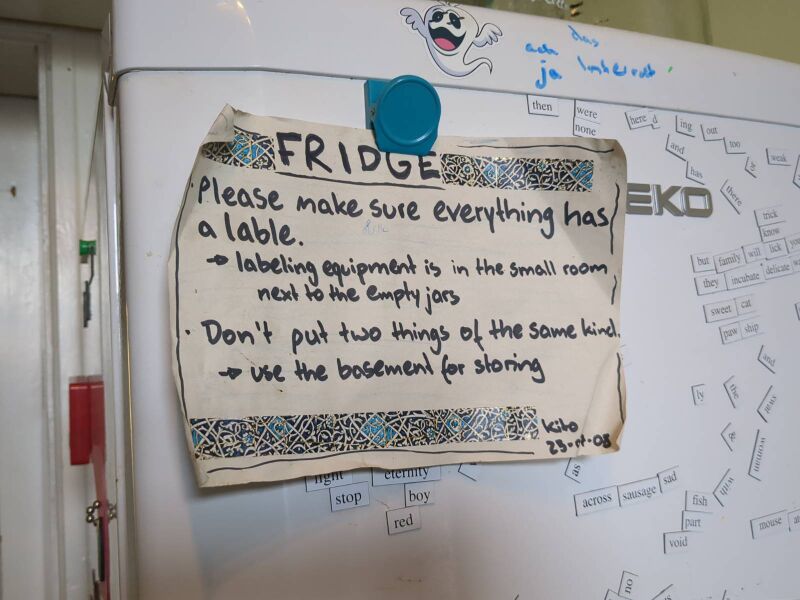 das
ja
then
were
none
here
d
ing
out
too
weak
and
has
there
FRIDGE
EKO
Please make sure everything has
a lable.
trick
know
→ labeling equipment is in the small room
next to the empty jars
but family will lick
they incubate delicate
sweet cat
paw ship
· Don't put two things of the same kind.
→ use the basement for storing
and
ly
the
&
woman
Kito
as
light
eternity
stop
boy
red
across sausage sad
with
fish
part
void
mouse
no